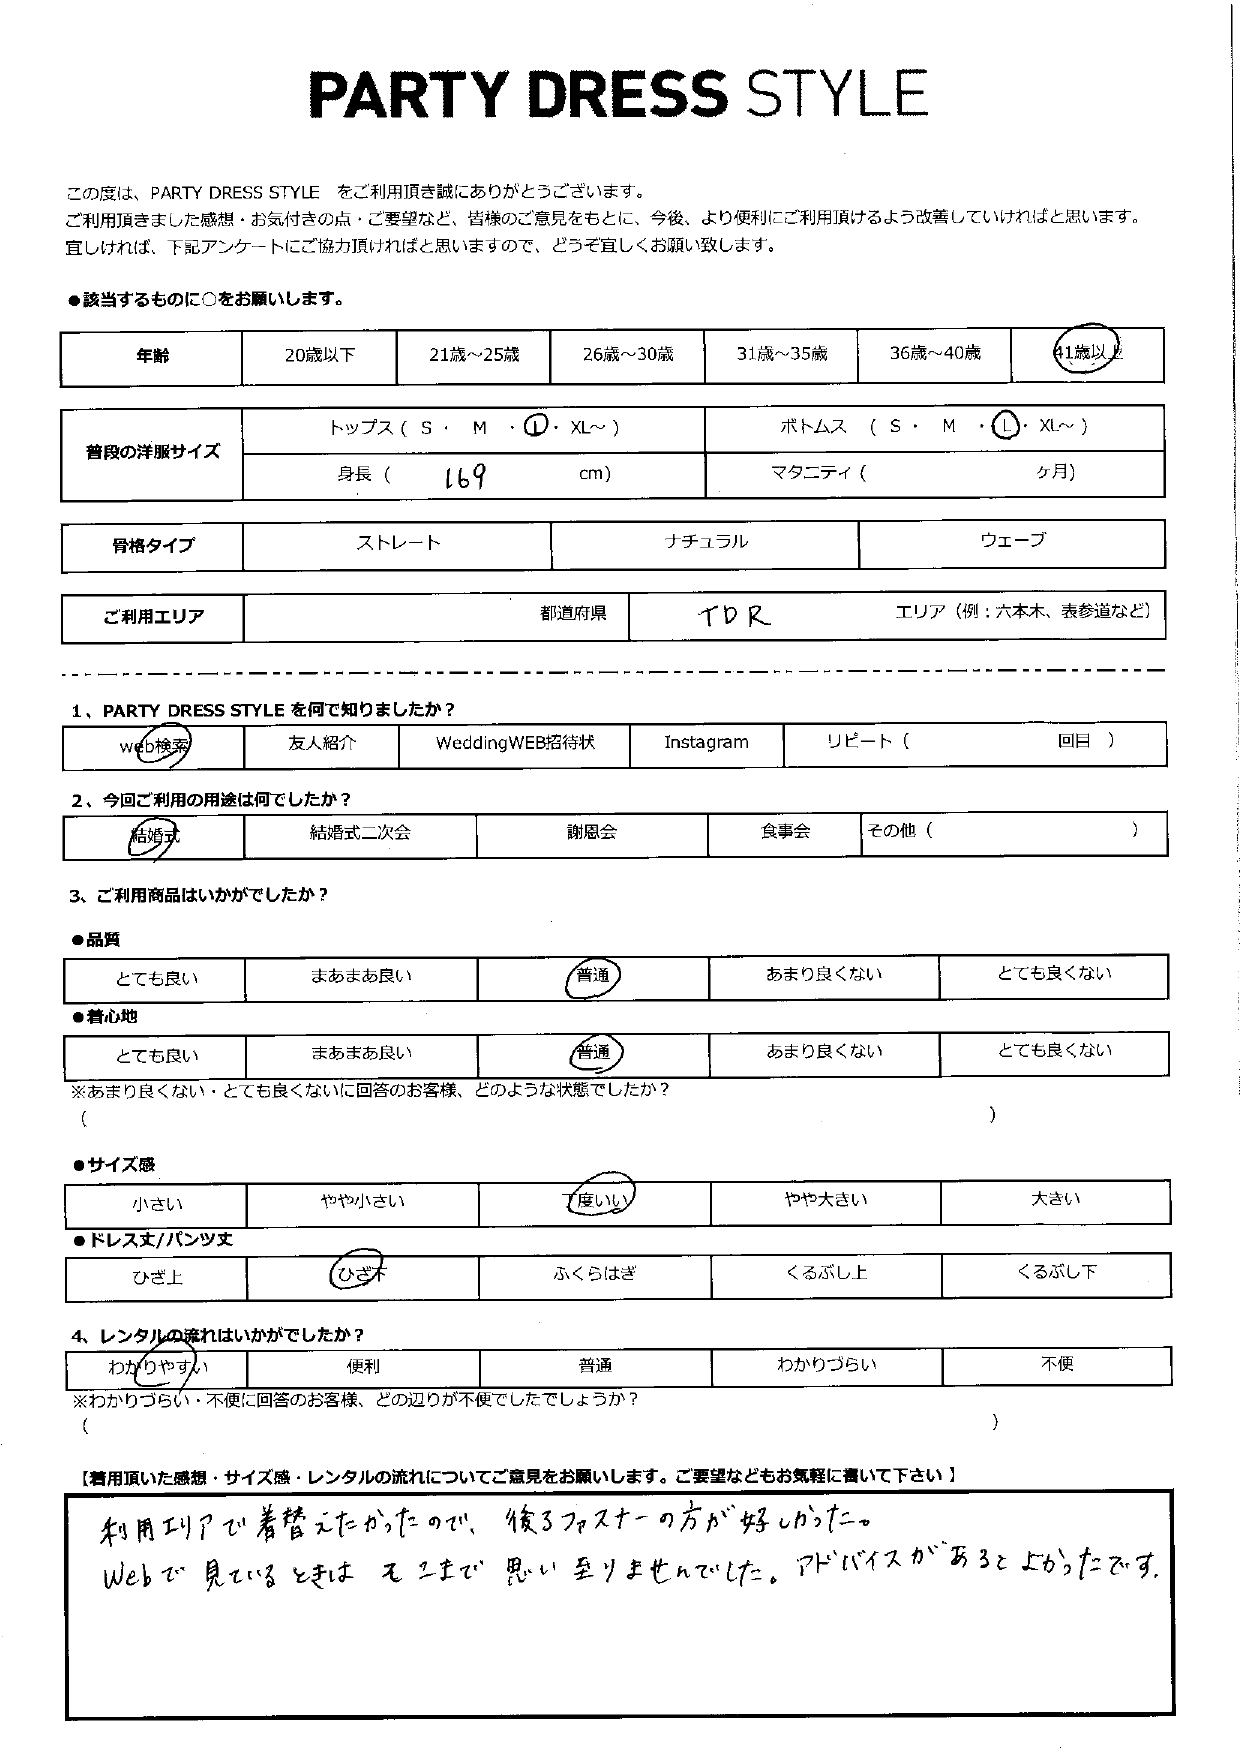 PARTY DRESS STYLE
この度は、PARTY DRESS STYLE をご利用頂き誠にありがとうございます。
ご利用頂きました感想・お気付きの点・ご要望など、皆様のご意見をもとに、今後、より便利にご利用頂けるよう改善していければと思います。
宜しければ、下記アンケートにご協力頂ければと思いますので、どうぞ宜しくお願い致します。
●該当するものに○をお願いします。
年齢 20歳以下 21歳～25歳 26歳～30歳 31歳～35歳 36歳～40歳 41歳以上
普段の洋服サイズ
トップス ( S ・ M ・ L ・ XL～ ) ボトムス ( S ・ M ・ L ・ XL～ )
身長 ( 169 cm) マタニティ ( ヶ月)
骨格タイプ ストレート ナチュラル ウェーブ
ご利用エリア 都道府県 TDR エリア（例：六本木、表参道など）
1、PARTY DRESS STYLE を何で知りましたか？
web検索 友人紹介 WeddingWEB招待状 Instagram リピート ( 回目 )
2、今回ご利用の用途は何でしたか？
結婚式 結婚式二次会 謝恩会 食事会 その他 ( )
3、ご利用商品はいかがでしたか？
●品質
とても良い まあまあ良い 普通 あまり良くない とても良くない
●着心地
とても良い まあまあ良い 普通 あまり良くない とても良くない
※あまり良くない・とても良くないに回答のお客様、どのような状態でしたか？
( )
●サイズ感
小さい やや小さい 丁度いい やや大きい 大きい
●ドレス丈/パンツ丈
ひざ上 ひざ下 ふくらはぎ くるぶし上 くるぶし下
4、レンタルの流れはいかがでしたか？
わかりやすい 便利 普通 わかりづらい 不便
※わかりづらい・不便に回答のお客様、どの辺りが不便でしたでしょうか？
( )
【着用頂いた感想・サイズ感・レンタルの流れについてご意見をお願いします。ご要望などもお気軽に書いて下さい】
利用エリアで着替えたかったので、後ろファスナーの方が好しかった。
Webで見ているときはそこまで思い至りませんでした。アドバイスがあるとよかったです。